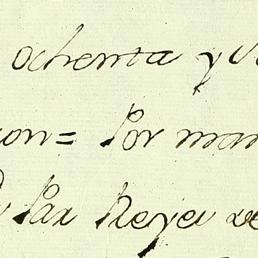 Ochenta y
ion= Por man
Paz Reyes de